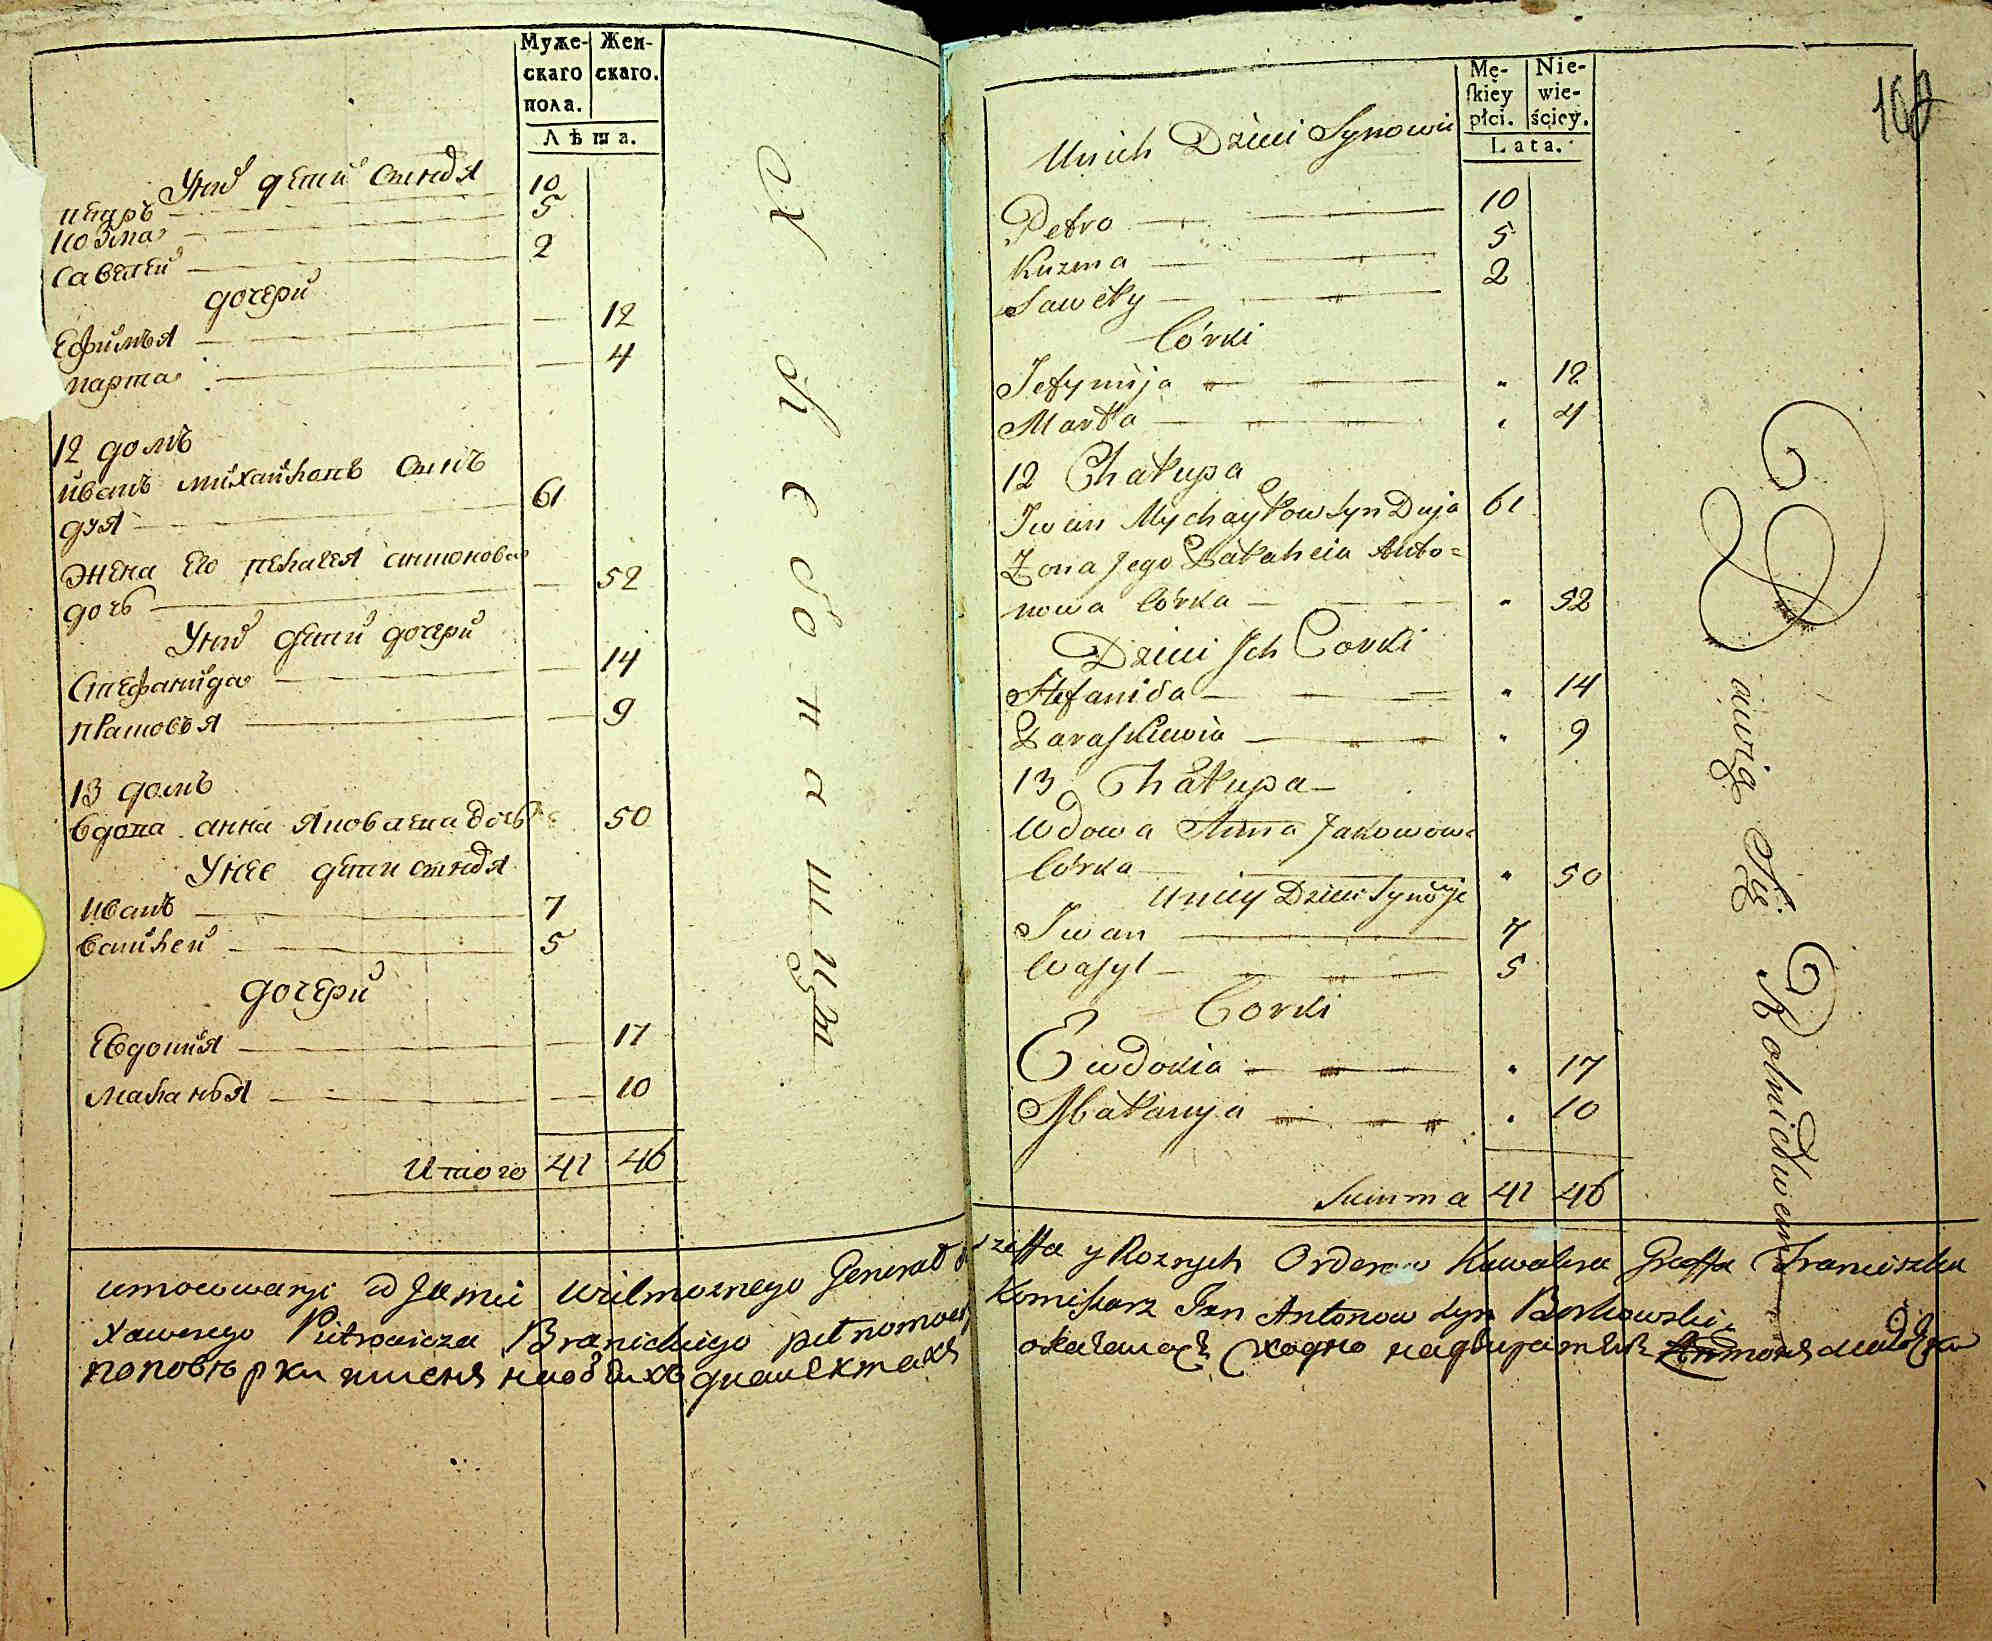 Муже-
скаго
пола.
Жен-
скаго.
Лѣта.
Унихъ дети сыновя
петръ 10
козма 5
савелей 2
дочери
Ефимья 12
марта 4
12 домъ
иванъ михайловъ сынъ
дуя 61
жена его пелагея антонова
дочь 52
Унихъ дети дочери
Стефанида 14
прасковья 9
13 домъ
вдова анна яковлева дочь 50
Унее дети сыновя
иванъ 7
василей 5
дочери
Евдокия 17
маланья 10
Итого 41 46
Хлебопашцы
Mę-
skiey
płci.
Nie-
wie-
ściey.
Lata.
Unich Dzieci Synowie
Petro 10
Kuzma 5
Saweły 2
Córki
Jefymija 12
Marta 4
12 Chałupa
Iwan Mychayłow Syn Duja 61
Żona Jego Pałaheia Anto=
nowa Córka 52
Dzieci Jch Corki
Stefanida 14
Paraskiewia 9
13 Chałupa
Wdowa Anna Jakowow=
Córka 50
Uniey Dzieci Synowie
Iwan 7
Wasyl 5
Corki
Ewdokia 17
Małanyja 10
Summa 41 46
Bawią Się Rolnictwem
umocowany w Jmieniu Wielmoznego Generał szeffa y Roznych Orderow Kawalera Graffa Franciszka
Xawerego Piotrowicza Branickiego pełnomocny Komissarz Jan Antonow syn Borkowski
поповерки имена наобеихъ диалектахъ оказалась сходно